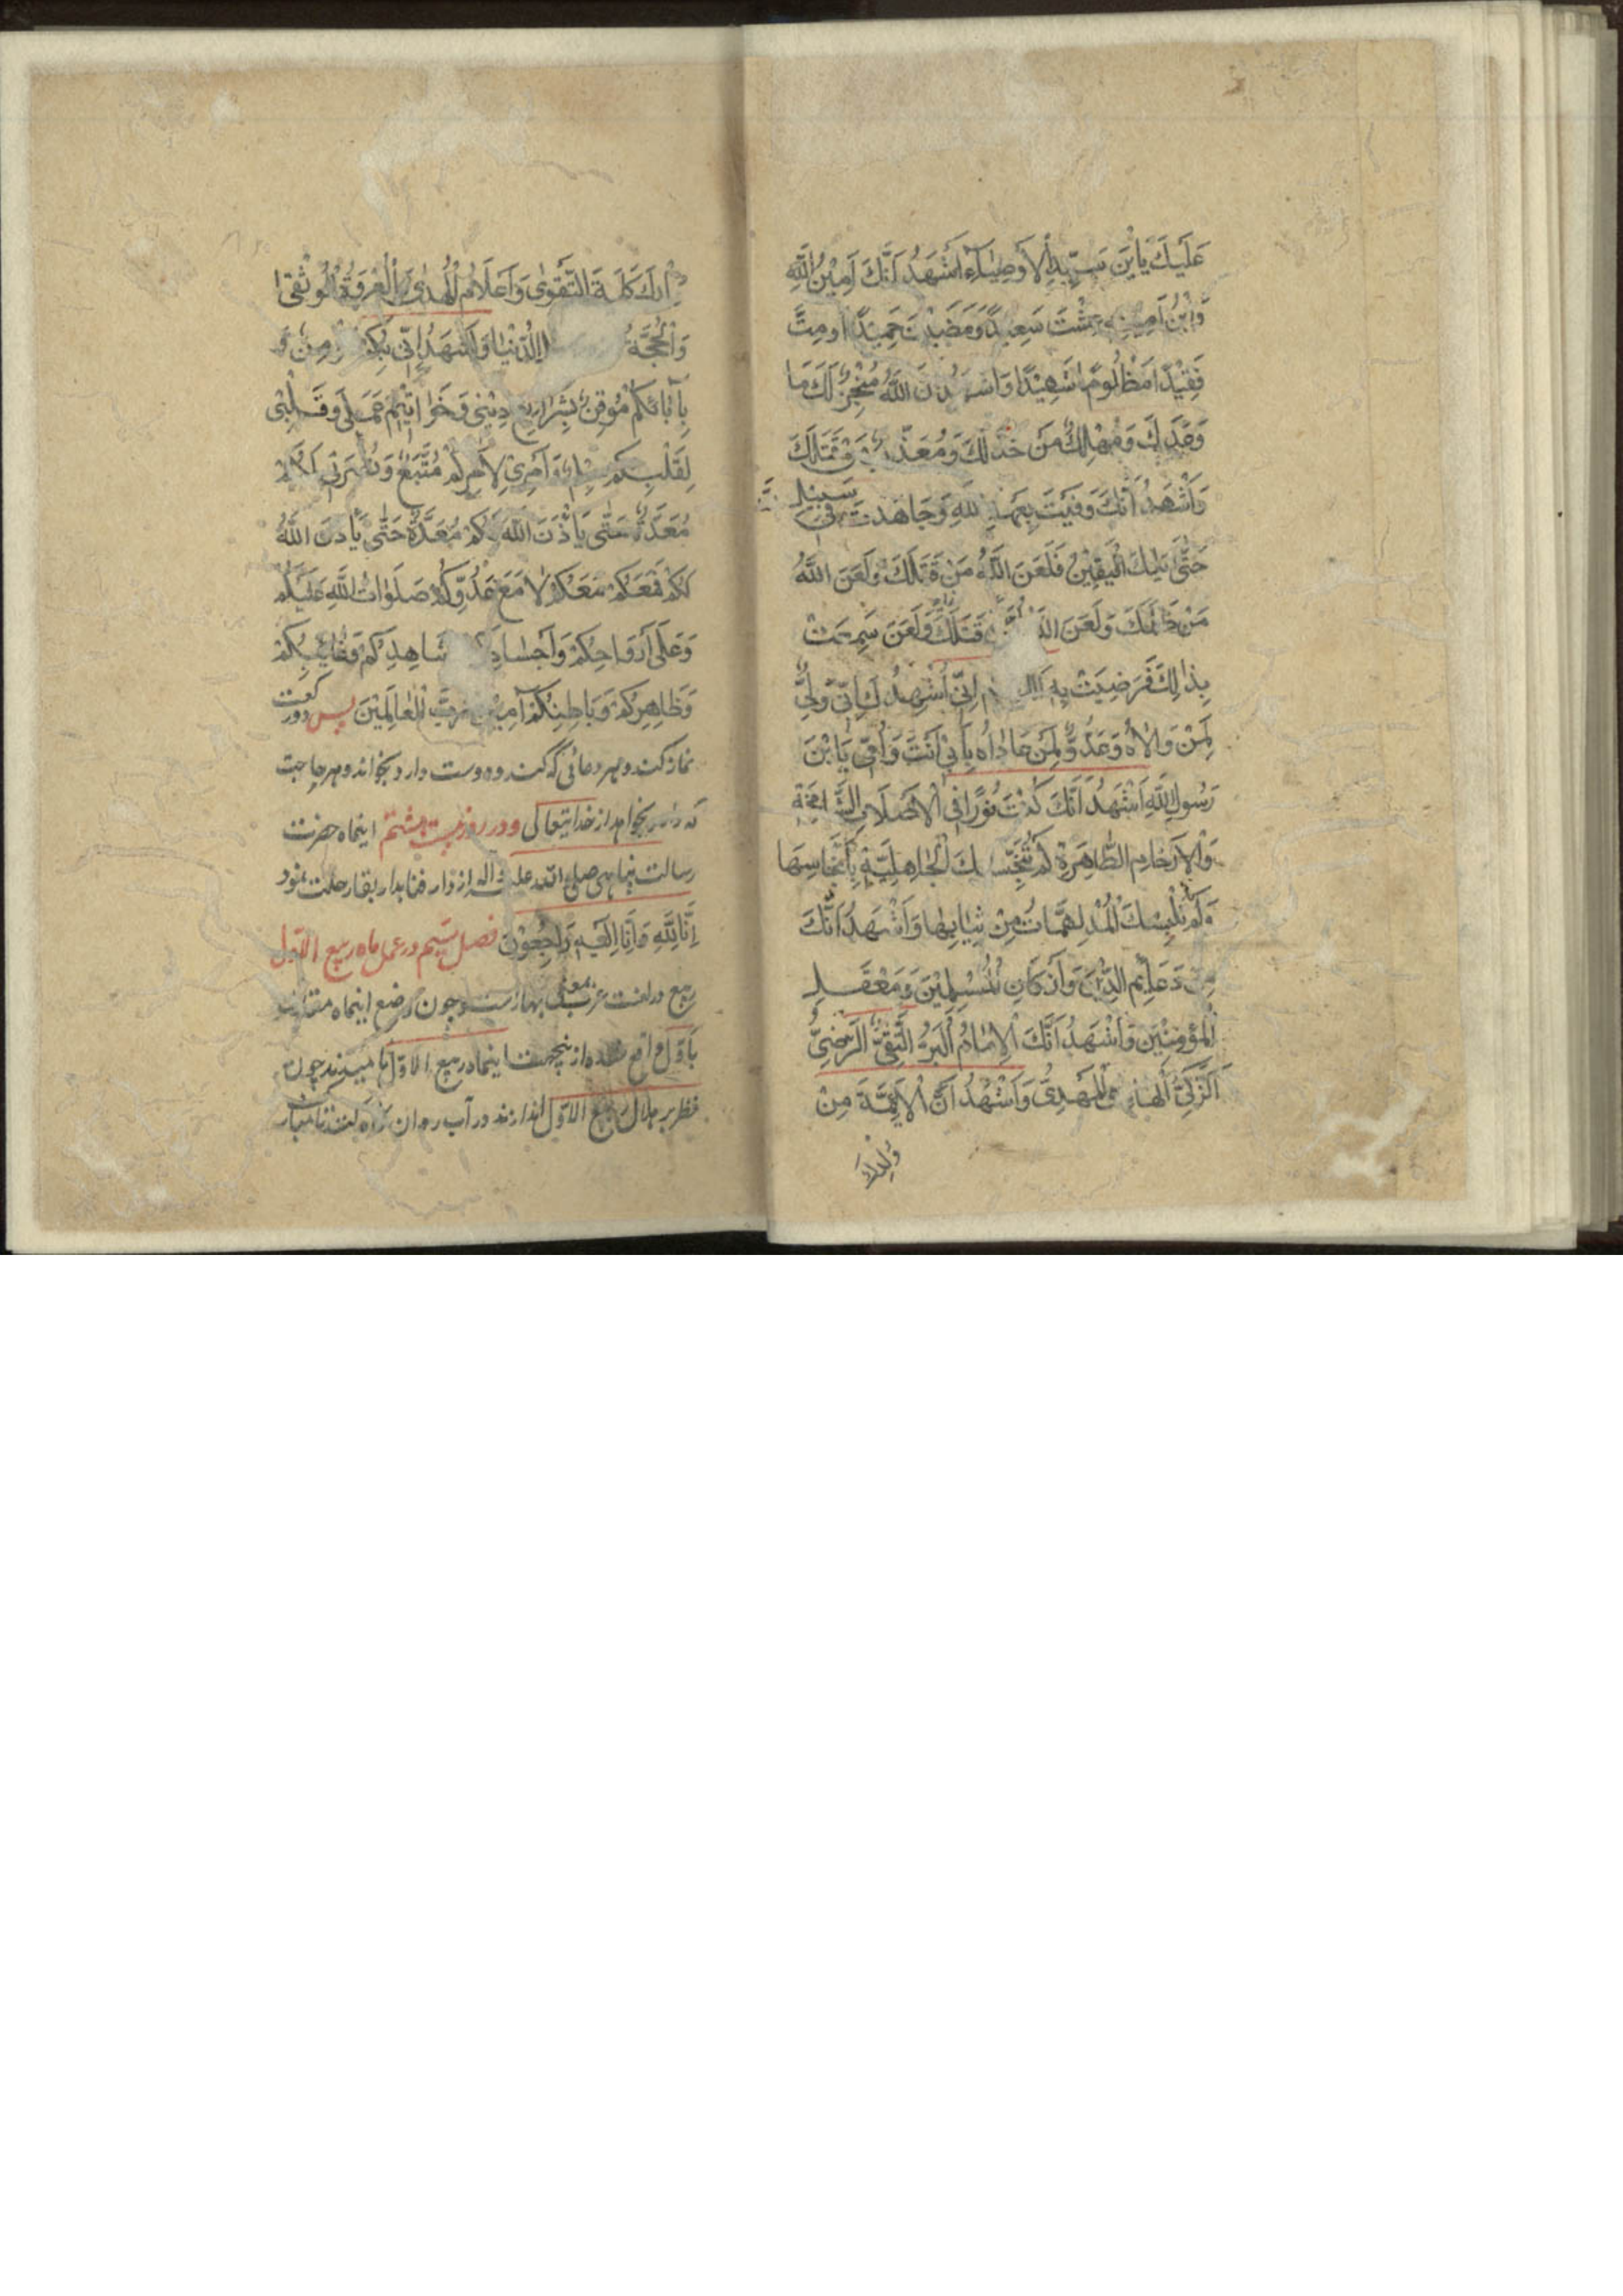 عَلَيْكَ يَابْنَ سَيِّدِ الْأَوْصِيَاءِ أَشْهَدُ أَنَّكَ أَمِيْنُ اللّٰهِ
وَابْنُ أَمِينِهِ عِشْتَ سَعِيدًا وَمَضَيْتَ حَمِيدًا وَمِتَّ
فَقِيْدًا مَظْلُومًا شَهِيْدًا وَأَشْهَدُ أَنَّ اللّٰهَ مُنْجِزٌ لَكَ مَا
وَعَدَكَ وَمُهْلِكٌ مَنْ خَذَلَكَ وَمُعَذِّبٌ مَنْ قَتَلَكَ
وَأَشْهَدُ أَنَّكَ وَفَيْتَ بِعَهْدِ اللّٰهِ وَجَاهَدْتَ فِي سَبِيلِهِ
حَتّٰى أَتٰيكَ الْيَقِيْنُ فَلَعَنَ اللّٰهُ مَنْ قَتَلَكَ وَلَعَنَ اللّٰهُ
مَنْ ظَلَمَكَ وَلَعَنَ اللّٰهُ قَتَلَكَ وَلَعَنَ سَمِعَتْ
بِذٰلِكَ فَرَضِيَتْ بِهِ إِنِّي أُشْهِدُكَ أَنِّي وَلِيٌّ
لِمَنْ وَالَاهُ وَعَدُوٌّ لِمَنْ عَادَاهُ بِأَبِي أَنْتَ وَأُمِّي يَابْنَ
رَسُولِ اللّٰهِ أَشْهَدُ أَنَّكَ كُنْتَ نُورًا فِي الْأَصْلَابِ الشَّامِخَةِ
وَالْأَرْحَامِ الطَّاهِرَةِ لَمْ تُنَجِّسْكَ الْجَاهِلِيَّةُ بِأَنْجَاسِهَا
وَلَمْ تُلْبِسْكَ الْمُدْلَهِمَّاتُ مِنْ ثِيَابِهَا وَأَشْهَدُ أَنَّكَ
مِنْ دَعَائِمِ الدِّيْنِ وَأَرْكَانِ الْمُسْلِمِيْنَ وَمَعْقَلِ
الْمُؤْمِنِيْنَ وَأَشْهَدُ أَنَّكَ الْإِمَامُ الْبَرُّ التَّقِيُّ الرَّضِيُّ
الزَّكِيُّ الْهَادِي الْمَهْدِيُّ وَأَشْهَدُ أَنَّ الْأَئِمَّةَ مِنْ
وُلْدِكَ
وُلْدِكَ كَلِمَةُ التَّقْوٰى وَأَعْلَامُ الْهُدٰى وَالْعُرْوَةُ الْوُثْقٰى
وَالْحُجَّةُ الدُّنْيَا وَأَشْهَدُ أَنِّي بِكُمْ مُؤْمِنٌ وَ
بِآبَائِكُمْ مُوْقِنٌ بِشَرَايِعِ دِيْنِي وَخَوَاتِيْمِ عَمَلِي وَقَلْبِي
لِقَلْبِكُمْ سِلْمٌ وَأَمْرِي لِأَمْرِكُمْ مُتَّبِعٌ وَنُصْرَتِي لَكُمْ
مُعَدَّةٌ حَتّٰى يَأْذَنَ اللّٰهُ لَكُمْ مُعَدَّةٌ حَتّٰى يَأْذَنَ اللّٰهُ
لَكُمْ فَمَعَكُمْ مَعَكُمْ لَا مَعَ عَدُوِّكُمْ صَلَوَاتُ اللّٰهِ عَلَيْكُمْ
وَعَلٰى أَرْوَاحِكُمْ وَأَجْسَادِكُمْ شَاهِدِكُمْ وَغَائِبِكُمْ
وَظَاهِرِكُمْ وَبَاطِنِكُمْ آمِيْنَ رَبَّ الْعَالَمِيْنَ پس دو رکعت
نماز کند و بهر دعائی که کند و دوست دارد بخواند و هر حاجت
که دارد بخواهد از خدایتعالی و در روز بیست هشتم اینماه حضرت
رسالت پناهی صلی الله علیه و اله از دار فنا بدار بقا رحلت نمود
إِنَّا لِلّٰهِ وَإِنَّا إِلَيْهِ رَاجِعُوْنَ فصل سیم در عمل ماه ربیع الاوّل
ربیع در لغت عرب بمعنی بهارست و چون وضع اینماه
باوّل واقع شده از ینجهت اینماه ربیع الاوّل نامیدند چون
نظر بر هلال ربیع الاوّل اندازند در آب روان نگاه کنند